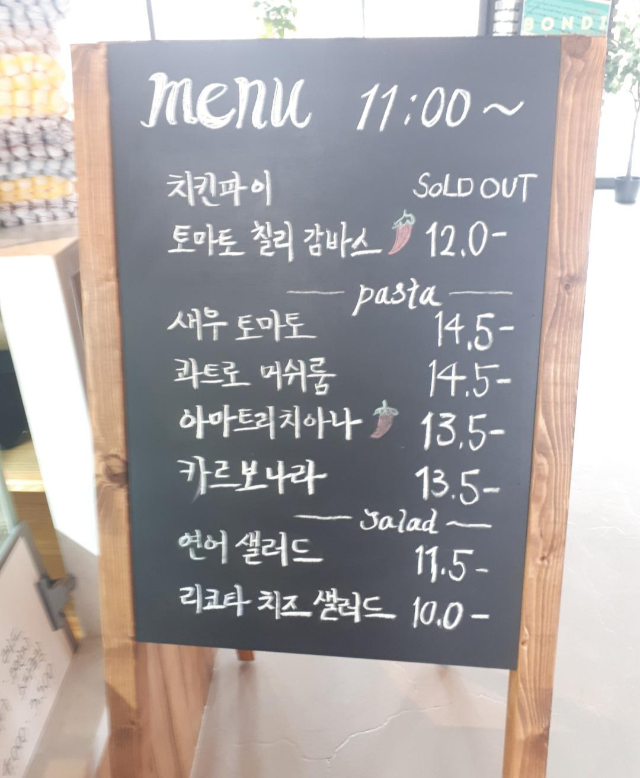 BONDI
menu 11:00 ~
치킨파이 SOLD OUT
토마토 칠리 감바스 12.0-
pasta
새우 토마토 14.5-
콰트로 머쉬룸 14.5-
아마트리치아나 13.5-
카르보나라 13.5-
salad
연어 샐러드 11.5-
리코타 치즈 샐러드 10.0-